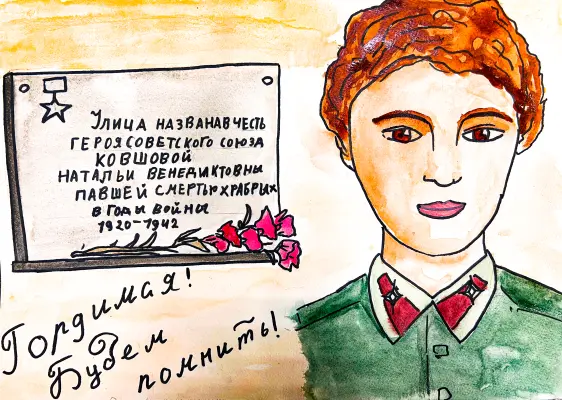 Улица названа в честь
Героя Советского Союза
Ковшовой
Натальи Венедиктовны
павшей смертью храбрых
в годы войны
1920-1942
Гордимая!
Будем
помнить!